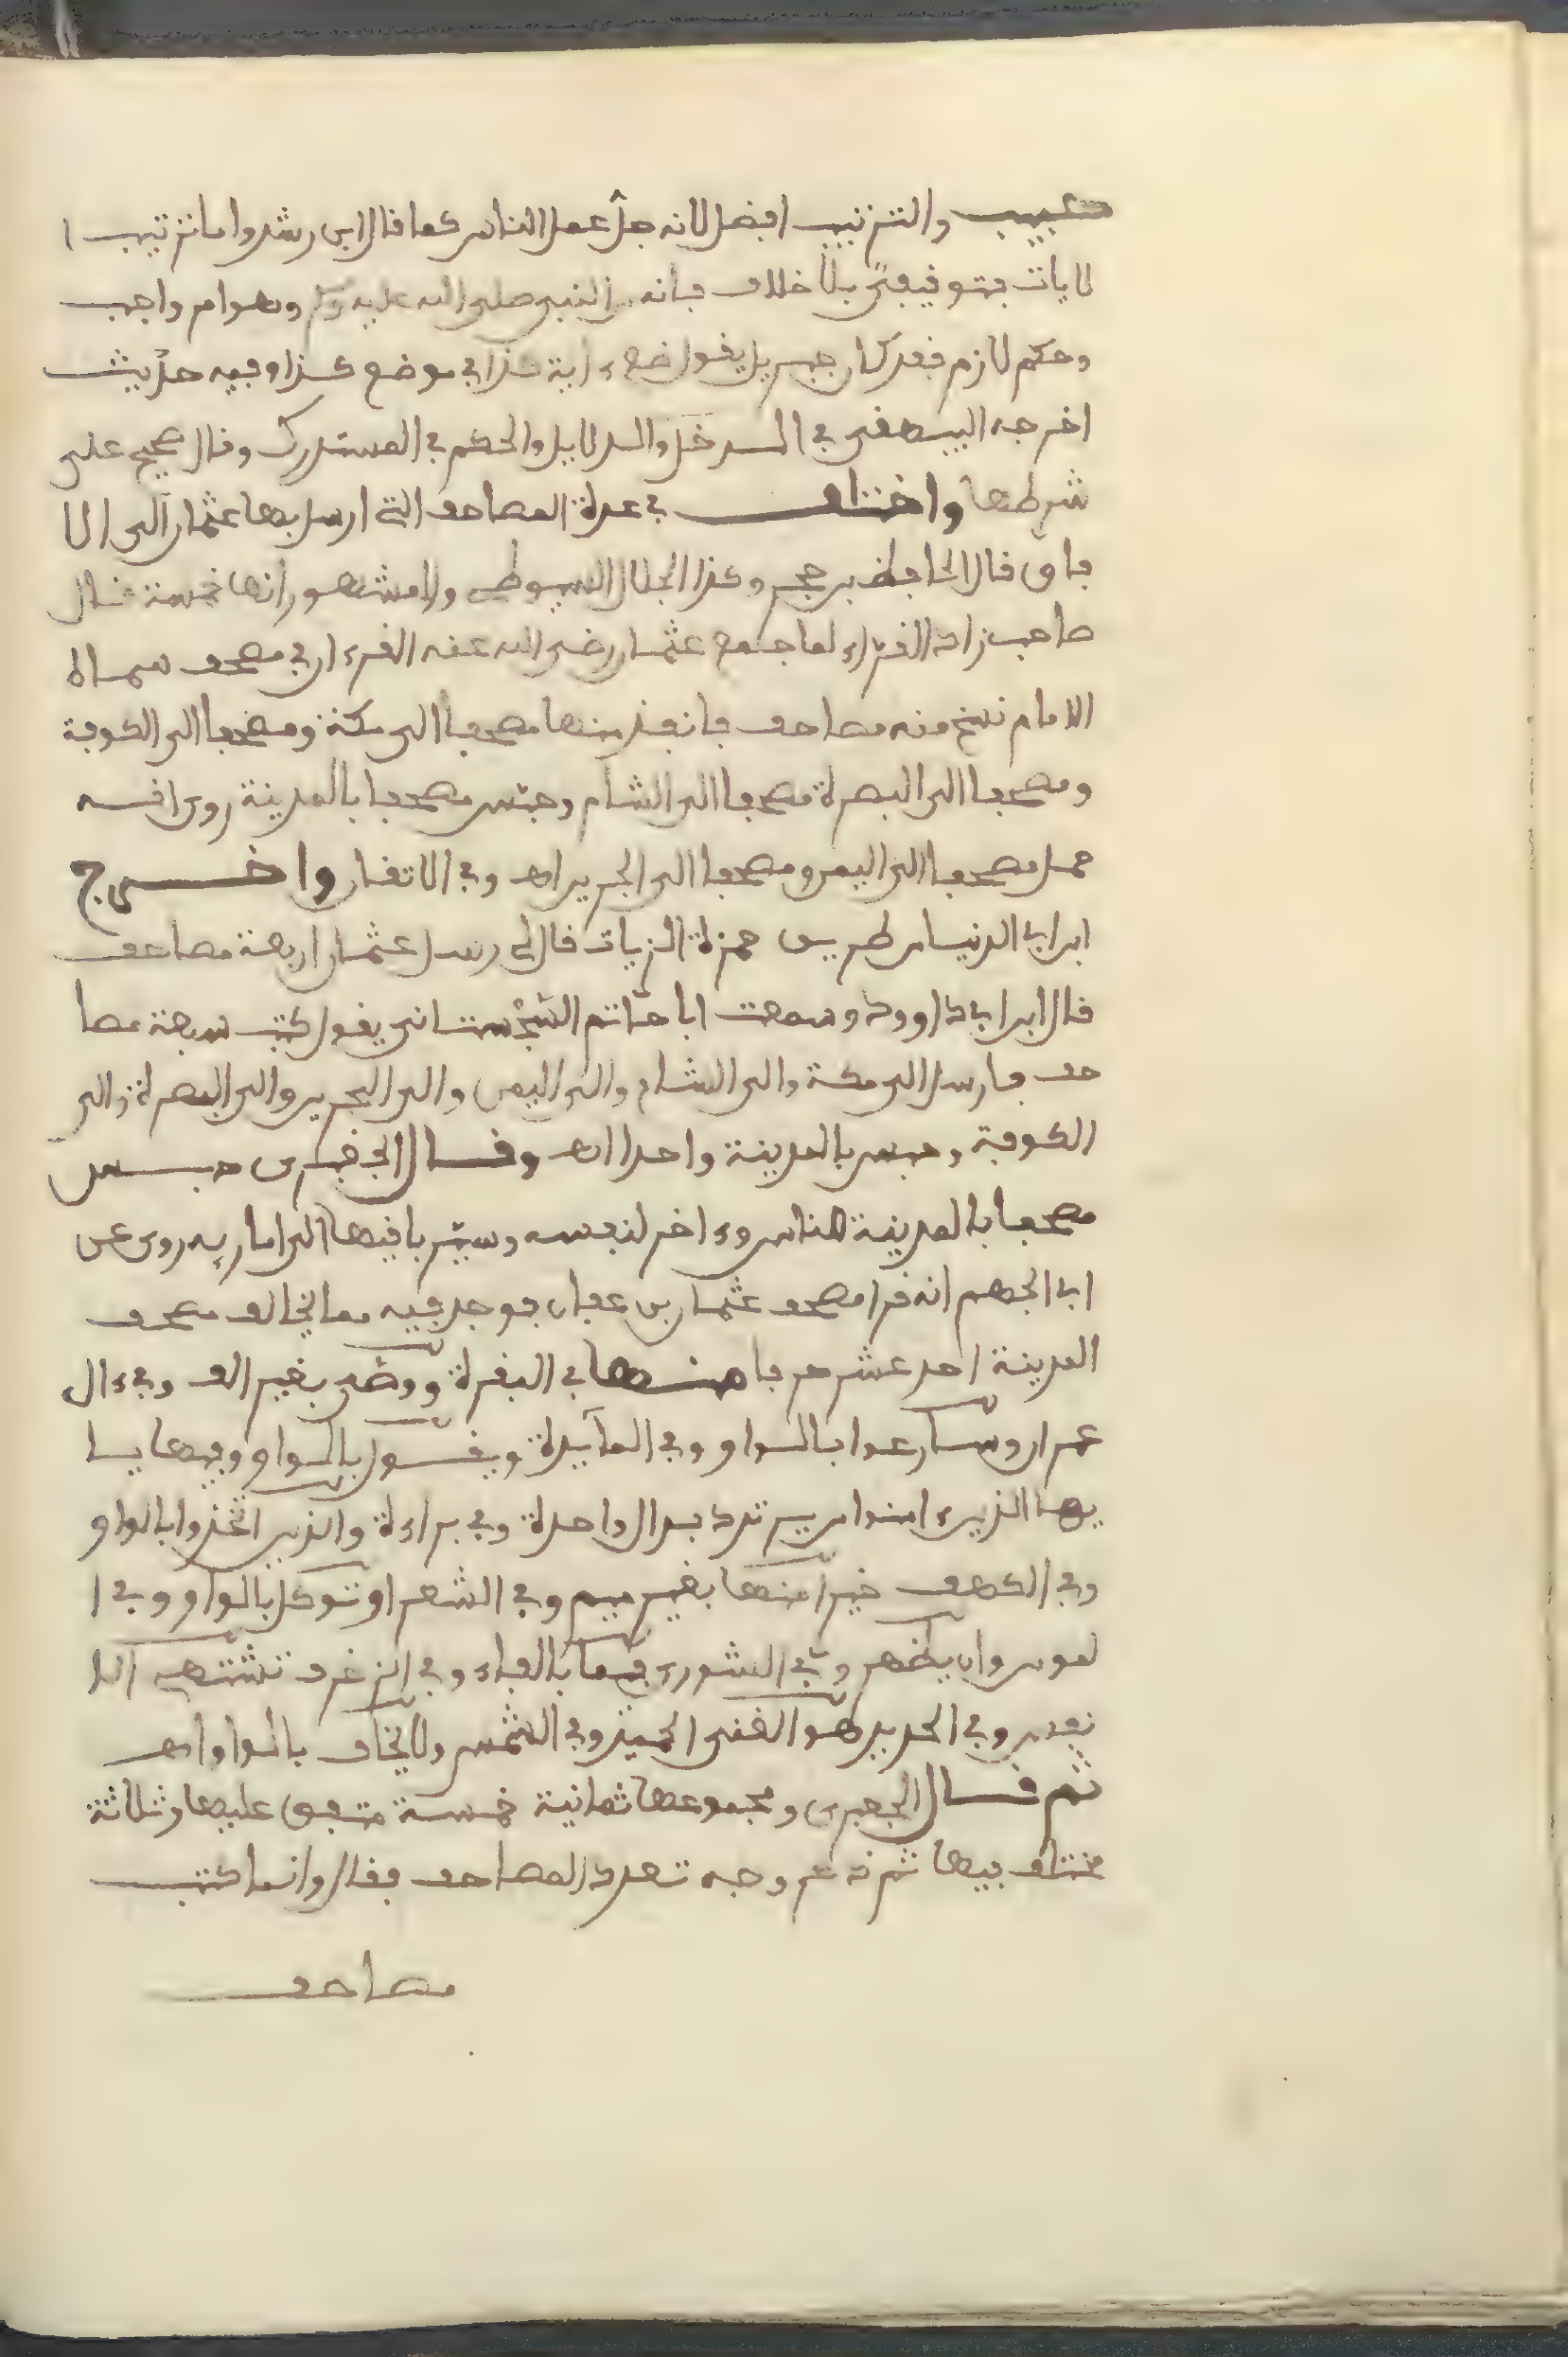 حبيب والترتيب افضل لانه جل عمل الناس كما قال ابن رشد واما ترتيب ا
لايات فتوقيفي بلا خلاف فانه من النبي صلى الله عليه وسلم وهو امر واجب
وحكم لازم فقد كان جبريل يقول ضع ءاية كذا في موضع كذا وفيه حديث
اخرجه البيهقي في المدخل والدلايل والحكم في المستدرك وقال صحيح على
شرطها واختلف في عدة المصاحف التي ارسل بها عثمان الى الا
فاق قال الحافظ بن حجر وكذا الجلال السيوطي ولامشهور انها خمسة قال
صاحب زاد القراء لما جمع عثمان رضي الله عنه القرءان في مصحف سماه
الامام نسخ منه مصاحف فانفذ منها مصحفا الى مكة ومصحفا الى الكوفة
ومصحفا الى البصرة مصحفا الى الشام وحبس مصحفا بالمدينة روى انه
حمل مصحفا الى اليمن ومصحفا الى البحرين اهـ وفي الاتقان واخرج
ابن ابي الدنيا من طريق حمزة الزيات قال ارسل عثمان اربعة مصاحف
قال ابن ابي داوود وسمعت ابا حاتم السجستاني يقول كتب سبعة مصا
حف فارسل الى مكة والى الشام والى اليمن والى البحرين والى البصرة والى
الكوفة وحبس بالمدينة واحدا اهـ وقال الجعبري حبس
مصحفا بالمدينة للناس وءاخر لنفسه وسير باقيها الى امرايه روى عن
ابي الجهم انه قرا مصحف عثمان بن عفان فوجد فيه مما يخالف مصحف
المدينة احد عشر حرفا منها في البقرة ووصى بغير الف وفي ءال
عمران وسارعوا بالواو وفي المآيدة ويقول بالواو وفيها يا
يها الذين ءامنوا من يرتد بدال واحدة وفي براءة والذين اتخذوا بالواو
وفي الكهف خيرا منها بغير ميم وفي الشعرا وتوكل بالواو وفي ا
لمومن وان يظهر وفي الشورى فبما بالفاء وفي الزخرف تشتهي الا
نفس وفي الحديد هو الغني الحميد وفي الشمس ولا يخاف بالواو اهـ
ثم قال الجعبري ومجموعها ثمانية خمسة متفق عليها وثلاثة
مختلف فيها ثم ذكر وجه تعدد المصاحف فقال وانما كتب
مصاحف